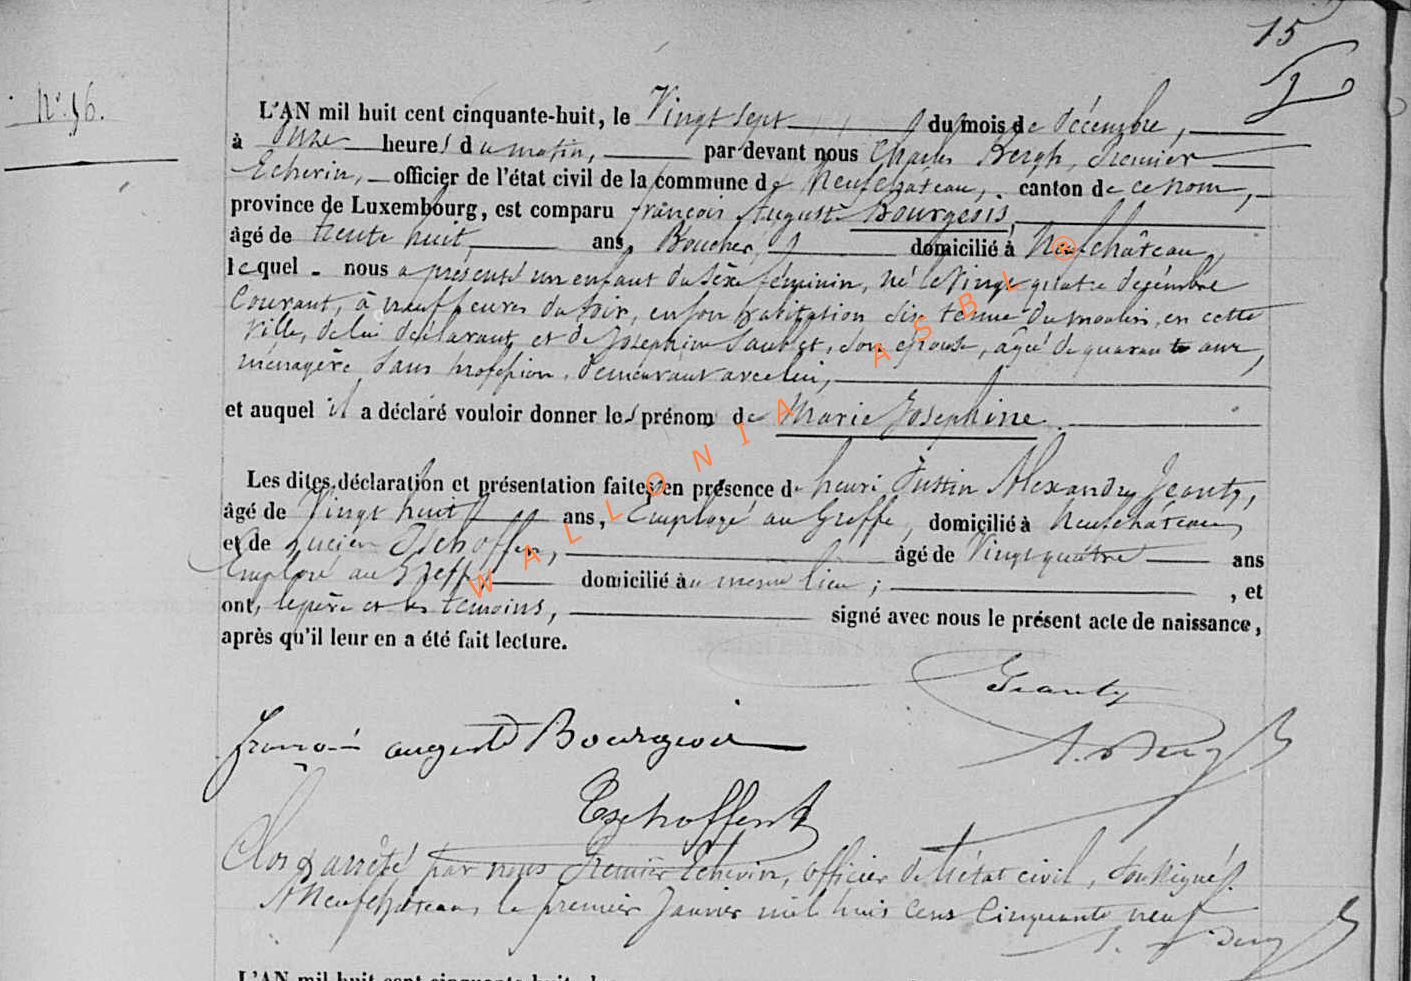 15
N° 56.
L'AN mil huit cent cinquante-huit, le Vingt sept du mois de décembre,
à onze heures du matin, par devant nous Charles Bergh, premier
Echevin, officier de l'état civil de la commune de Neufchâteau, canton de ce nom,
province de Luxembourg, est comparu françois Auguste Bourgeois,
âgé de trente huit ans, Boucher, domicilié à Neufchâteau,
lequel nous a présenté un enfant du sèxe féminin, né le Vingt quatre décembre
Courant, à neuf heures du soir, en son habitation dite tenue du moulin, en cette
ville, de lui déclarant, et de Joséphine , son épouse, agée de quarante ans,
ménagère sans profession, demeurant avec lui,
et auquel il a déclaré vouloir donner les prénoms de Marie Josephine.
Les dites déclaration et présentation faites en présence de henri Justin Alexandre Jeanty,
âgé de Vingt huit ans, Employé au Greffe, domicilié à Neufchâteau,
et de Lucien Tschoffen, âgé de Vingt quatre ans
Employé au Greffe, domicilié au même lieu ; , et
ont, le père et les témoins, signé avec nous le présent acte de naissance,
après qu'il leur en a été fait lecture.
Jeanty
françois auguste Bourgeois
Tschoffen
Clos & arrêté par nous Premier Echevin, officier de l'état civil, soussigné.
A Neufchâteau, le premier Janvier mil huit cent Cinquante neuf
L'AN mil huit cent cinquante-huit, le
WALLONIA ASBL ®